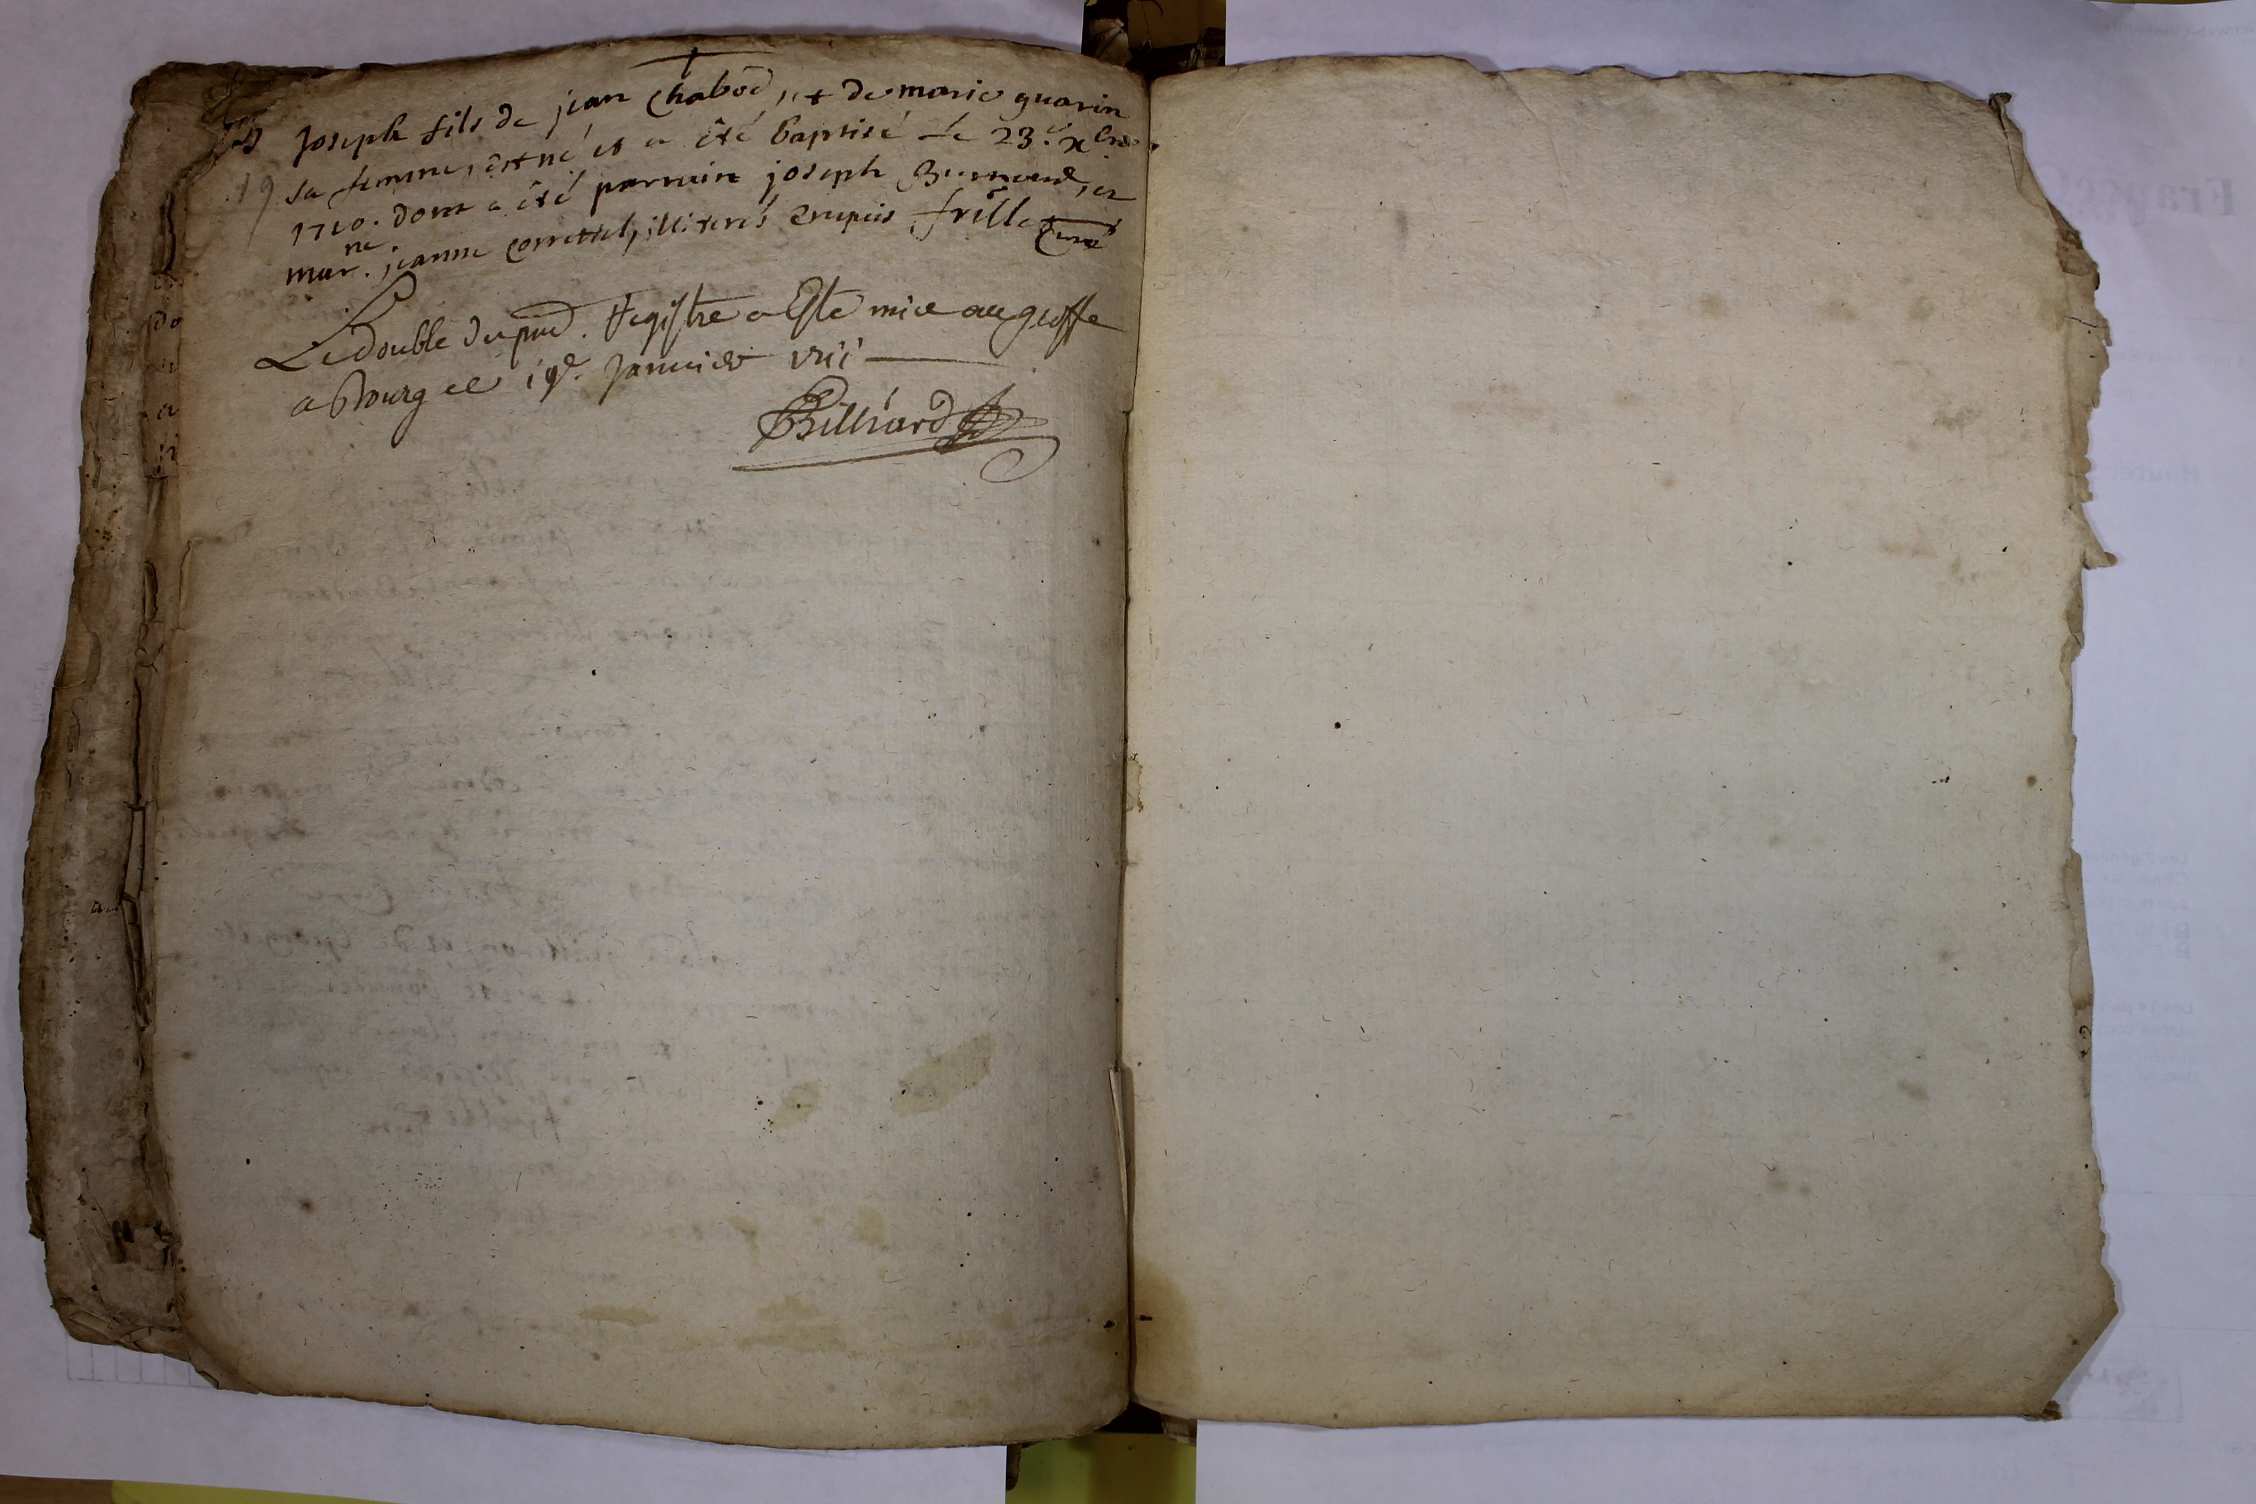 Joseph fils de jean Chabod, et de marie guarin
19 sa femme, est né et a été baptisé le 23.e xbre.
1710. dont a été parrain joseph Burnoud, et
mar.ne jeanne corretel, illiterés enquis frille Curé
Le double du pnd. Registre a Esté mis au greffe
a bourg ce 19e. Janvier 1711
Billiard